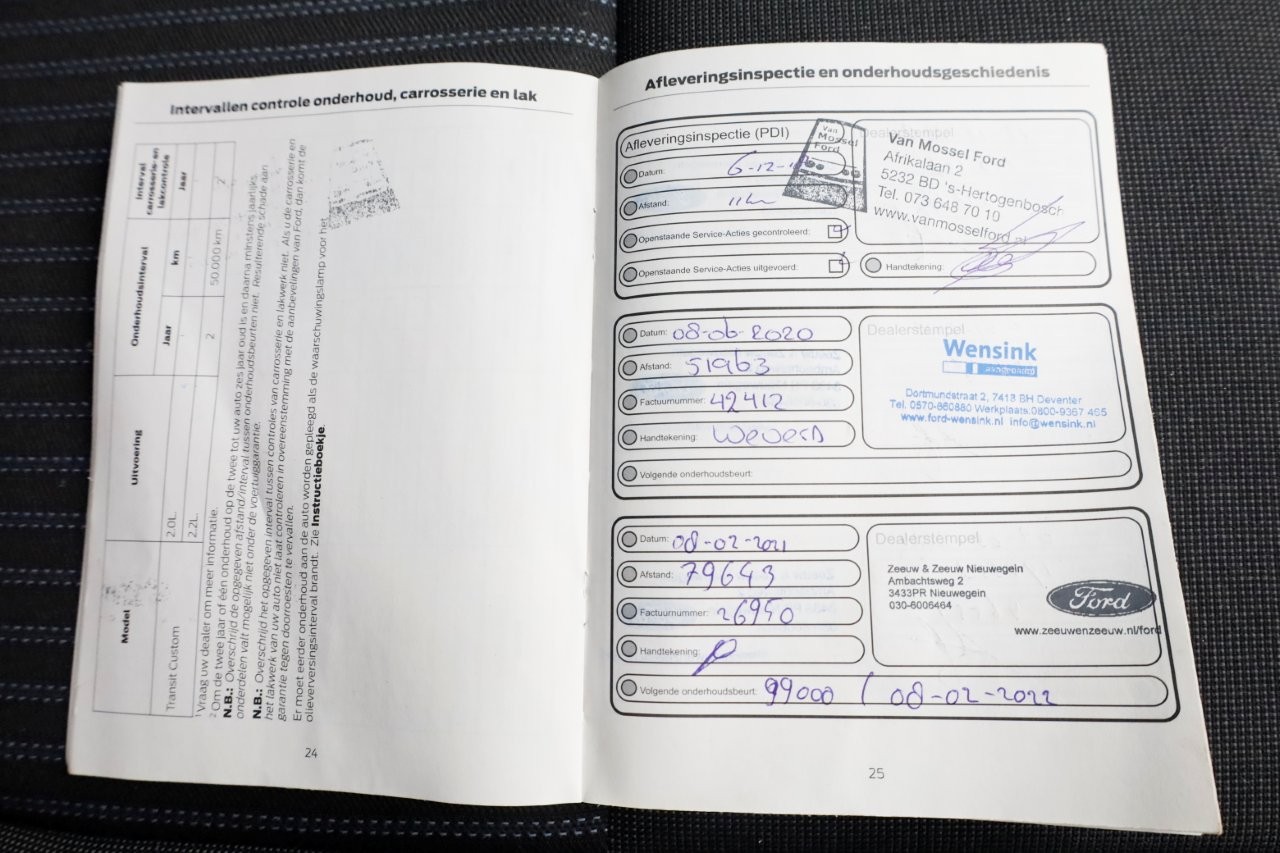 Intervallen controle onderhoud, carrosserie en lak
Model
Uitvoering
Onderhoudsinterval
Interval carrosserie- en lakcontrole
Jaar
km
Jaar
Transit Custom
2.0L
2.2L
2
50.000 km
2
¹ Vraag uw dealer om meer informatie.
² Om de twee jaar of één onderhoud op de twee tot uw auto zes jaar oud is en daarna minstens jaarlijks.
N.B.: Overschrijd de opgegeven afstand/interval tussen onderhoudsbeurten niet. Resulterende schade aan
onderdelen valt mogelijk niet onder de voertuiggarantie.
N.B.: Overschrijd het opgegeven interval tussen controles van carrosserie en lakwerk niet. Als u de carrosserie en
het lakwerk van uw auto niet laat controleren in overeenstemming met de aanbevelingen van Ford, dan komt de
garantie tegen doorroesten te vervallen.
Er moet eerder onderhoud aan de auto worden gepleegd als de waarschuwingslamp voor het
olieverversingsinterval brandt. Zie Instructieboekje.
24
Afleveringsinspectie en onderhoudsgeschiedenis
Afleveringsinspectie (PDI)
Datum: 6-12-
Afstand:
Openstaande Service-Acties gecontroleerd:
Openstaande Service-Acties uitgevoerd:
Van
Mossel
Ford
Dealerstempel
Van Mossel Ford
Afrikalaan 2
5232 BD 's-Hertogenbosch
Tel. 073 648 70 10
www.vanmosselford.nl
Handtekening:
Datum: 08-06-2020
Afstand: 51963
Factuurnummer: 42412
Handtekening:
Volgende onderhoudsbeurt:
Dealerstempel
Wensink
Dortmundstraat 2, 7418 BH Deventer
Tel. 0570-860880 Werkplaats.0800-9367 465
www.ford-wensink.nl info@wensink.nl
Datum: 08-02-2021
Afstand: 79643
Factuurnummer: 26950
Handtekening:
Volgende onderhoudsbeurt: 99000 / 08-02-2022
Dealerstempel
Zeeuw & Zeeuw Nieuwegein
Ambachtsweg 2
3433PR Nieuwegein
030-6006464
Ford
www.zeeuwenzeeuw.nl/ford
25